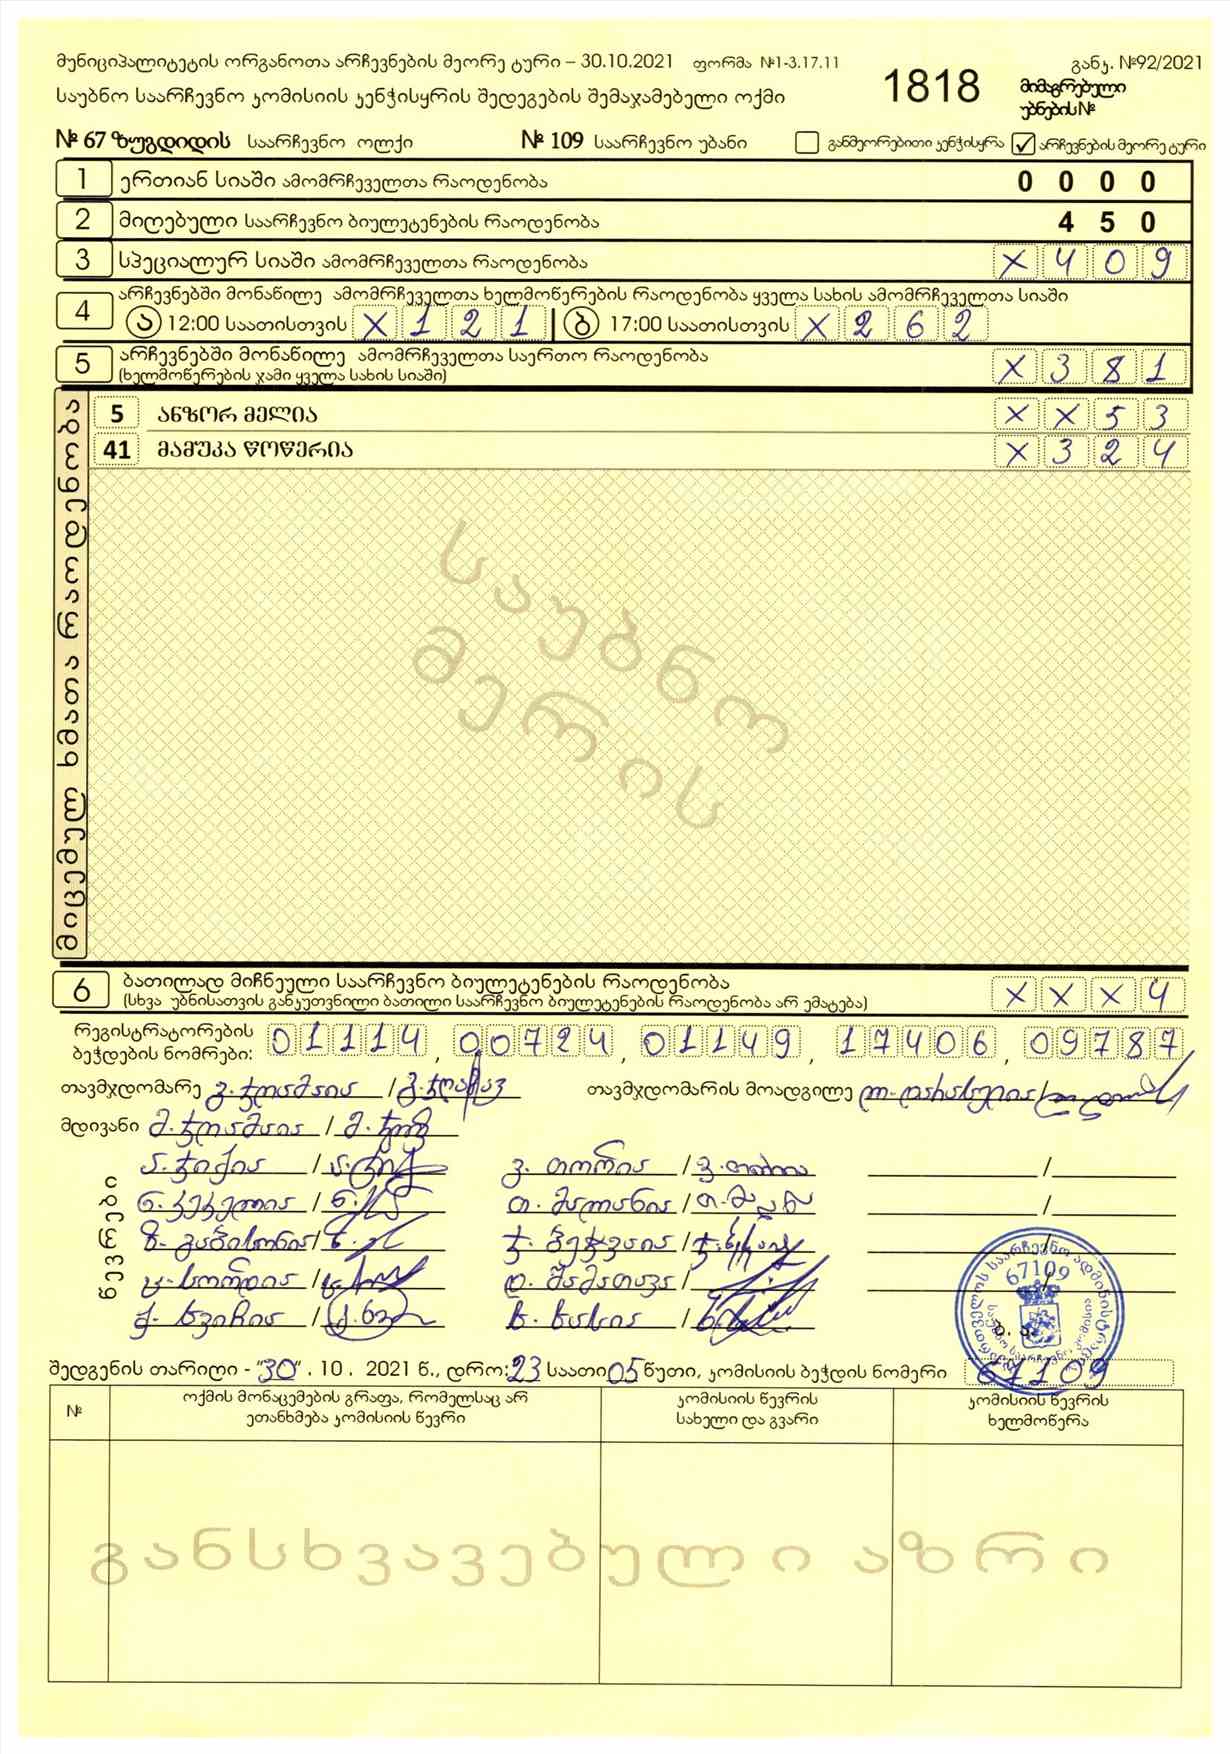 მუნიციპალიტეტის ორგანოთა არჩევნების მეორე ტური – 30.10.2021 ფორმა №1-3.17.11 1818 განკ. №92/2021
საუბნო საარჩევნო კომისიის კენჭისყრის შედეგების შემაჯამებელი ოქმი მიმაგრებული
უბნების№
№ 67 ზუგდიდის საარჩევნო ოლქი № 109 საარჩევნო უბანი განმეორებითი კენჭისყრა ✓ არჩევნების მეორე ტური
1 ერთიან სიაში ამომრჩეველთა რაოდენობა 0 0 0 0
2 მიღებული საარჩევნო ბიულეტენების რაოდენობა 4 5 0
3 სპეციალურ სიაში ამომრჩეველთა რაოდენობა X 4 0 9
4 არჩევნებში მონაწილე ამომრჩეველთა ხელმოწერების რაოდენობა ყველა სახის ამომრჩეველთა სიაში
ა 12:00 საათისთვის X 1 2 1 ბ 17:00 საათისთვის X 2 6 2
5 არჩევნებში მონაწილე ამომრჩეველთა საერთო რაოდენობა X 3 8 1
(ხელმოწერების ჯამი ყველა სახის სიაში)
მიცემულ ხმათა რაოდენობა
5 ანზორ მელია X X 5 3
41 მამუკა წოწერია X 3 2 4
საუბნო
მერის
6 ბათილად მიჩნეული საარჩევნო ბიულეტენების რაოდენობა X X X 4
(სხვა უბნისათვის განკუთვნილი ბათილი საარჩევნო ბიულეტენების რაოდენობა არ ემატება)
რეგისტრატორების
ბეჭდების ნომრები: 01114, 00724, 01149, 17406, 09787
თავმჯდომარე თავმჯდომარის მოადგილე
მდივანი
წევრები
ა. ჯიქია / ვ. თორია /
თ. მალანია /
შედგენის თარიღი - "30". 10. 2021 წ., დრო: 23 საათი 05 წუთი, კომისიის ბეჭდის ნომერი 67109
67109
ბ. ა.
№ ოქმის მონაცემების გრაფა, რომელსაც არ
ეთანხმება კომისიის წევრი კომისიის წევრის
სახელი და გვარი კომისიის წევრის
ხელმოწერა
განსხვავებული აზრი